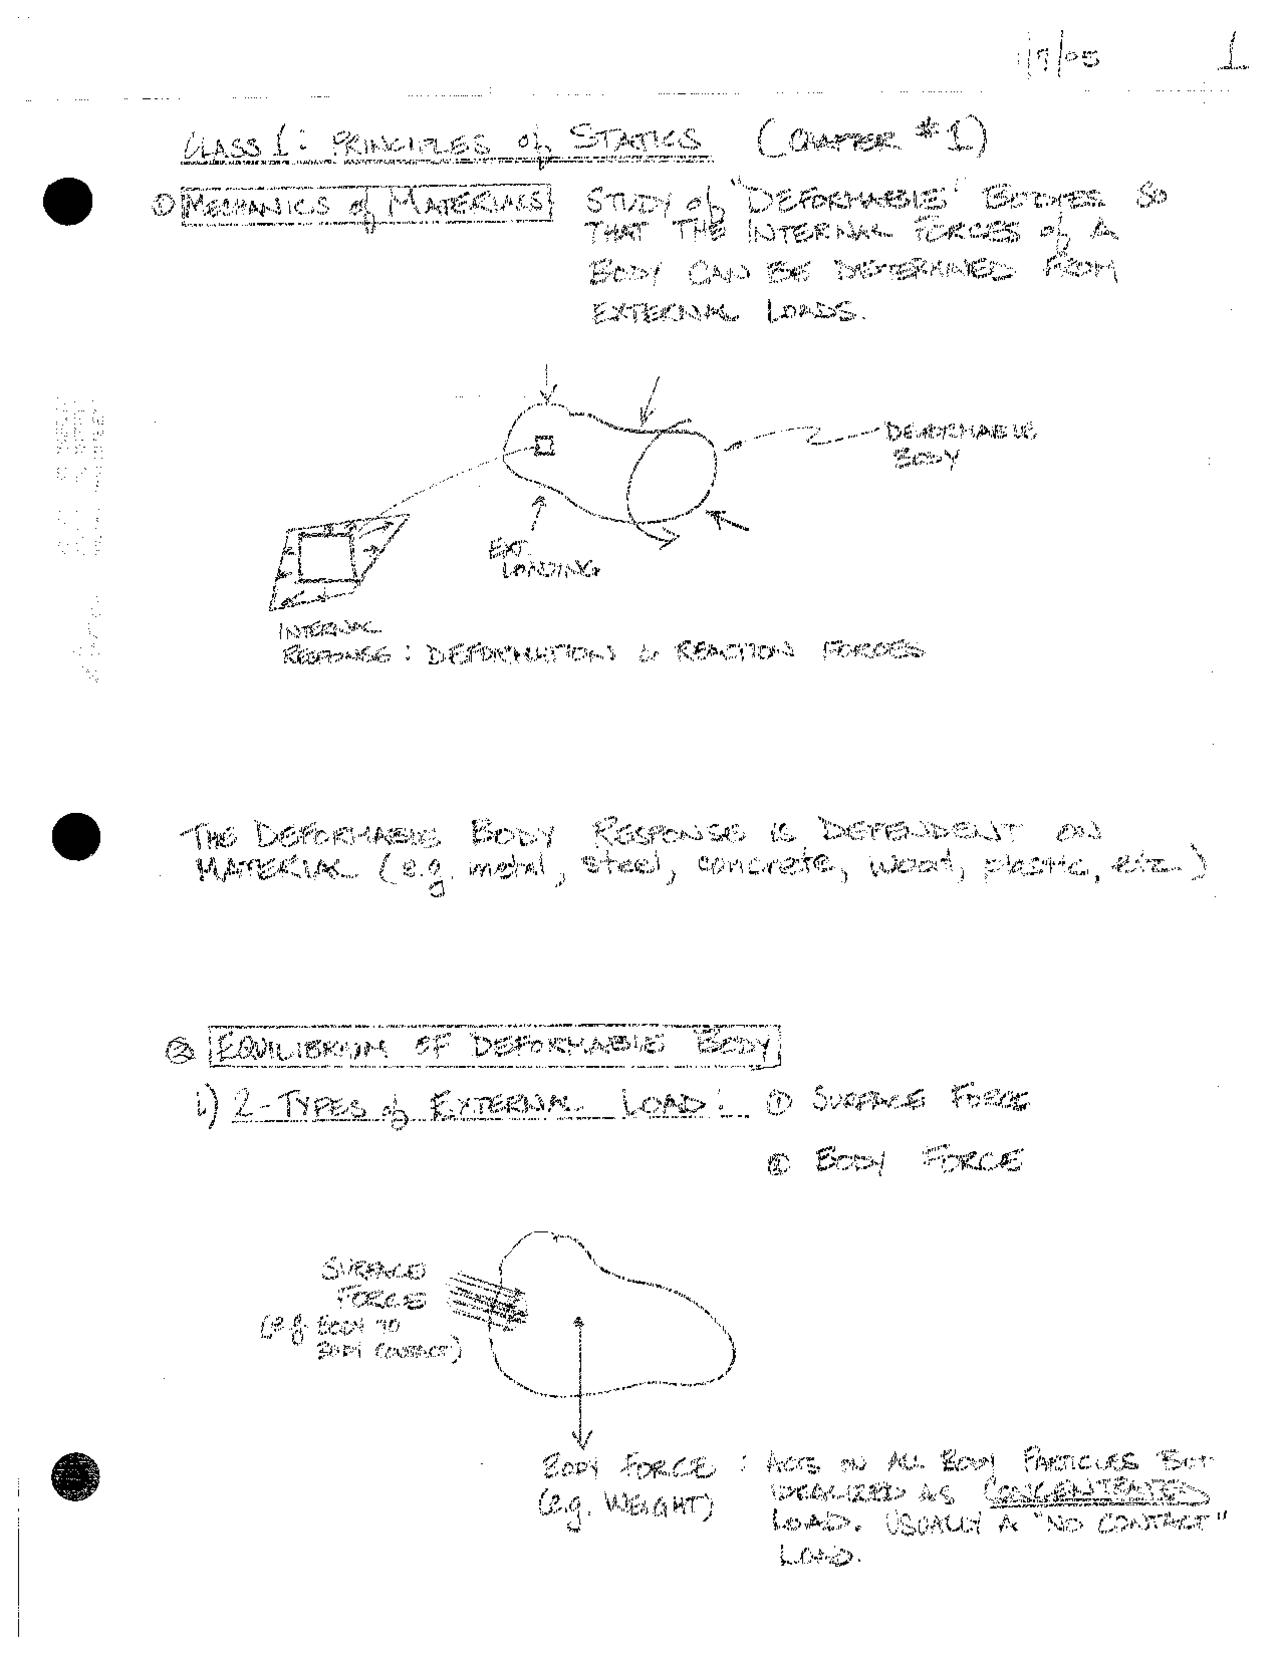 1/7/05 1
CLASS 1: PRINCIPLES of STATICS (CHAPTER #1)
① MECHANICS of MATERIALS STUDY of "DEFORMABLE" BODIES SO
THAT THE INTERNAL FORCES of A
BODY CAN BE DETERMINED FROM
EXTERNAL LOADS.
DEFORMABLE
BODY
EXT.
LOADING
INTERNAL
RESPONSE: DEFORMATION & REACTION FORCES
THE DEFORMABLE BODY RESPONSE IS DEPENDENT ON
MATERIAL (e.g. metal, steel, concrete, wood, plastic, etc.)
② EQUILIBRIUM OF DEFORMABLE BODY
i) 2-TYPES of EXTERNAL LOAD: ① SURFACE FORCE
② BODY FORCE
SURFACE
FORCE
(e.g. BODY TO
BODY CONTACT)
BODY FORCE : ACTS ON ALL BODY PARTICLES BUT
(e.g. WEIGHT) IDEALIZED AS CONCENTRATED
LOAD. USUALLY A "NO CONTACT"
LOAD.